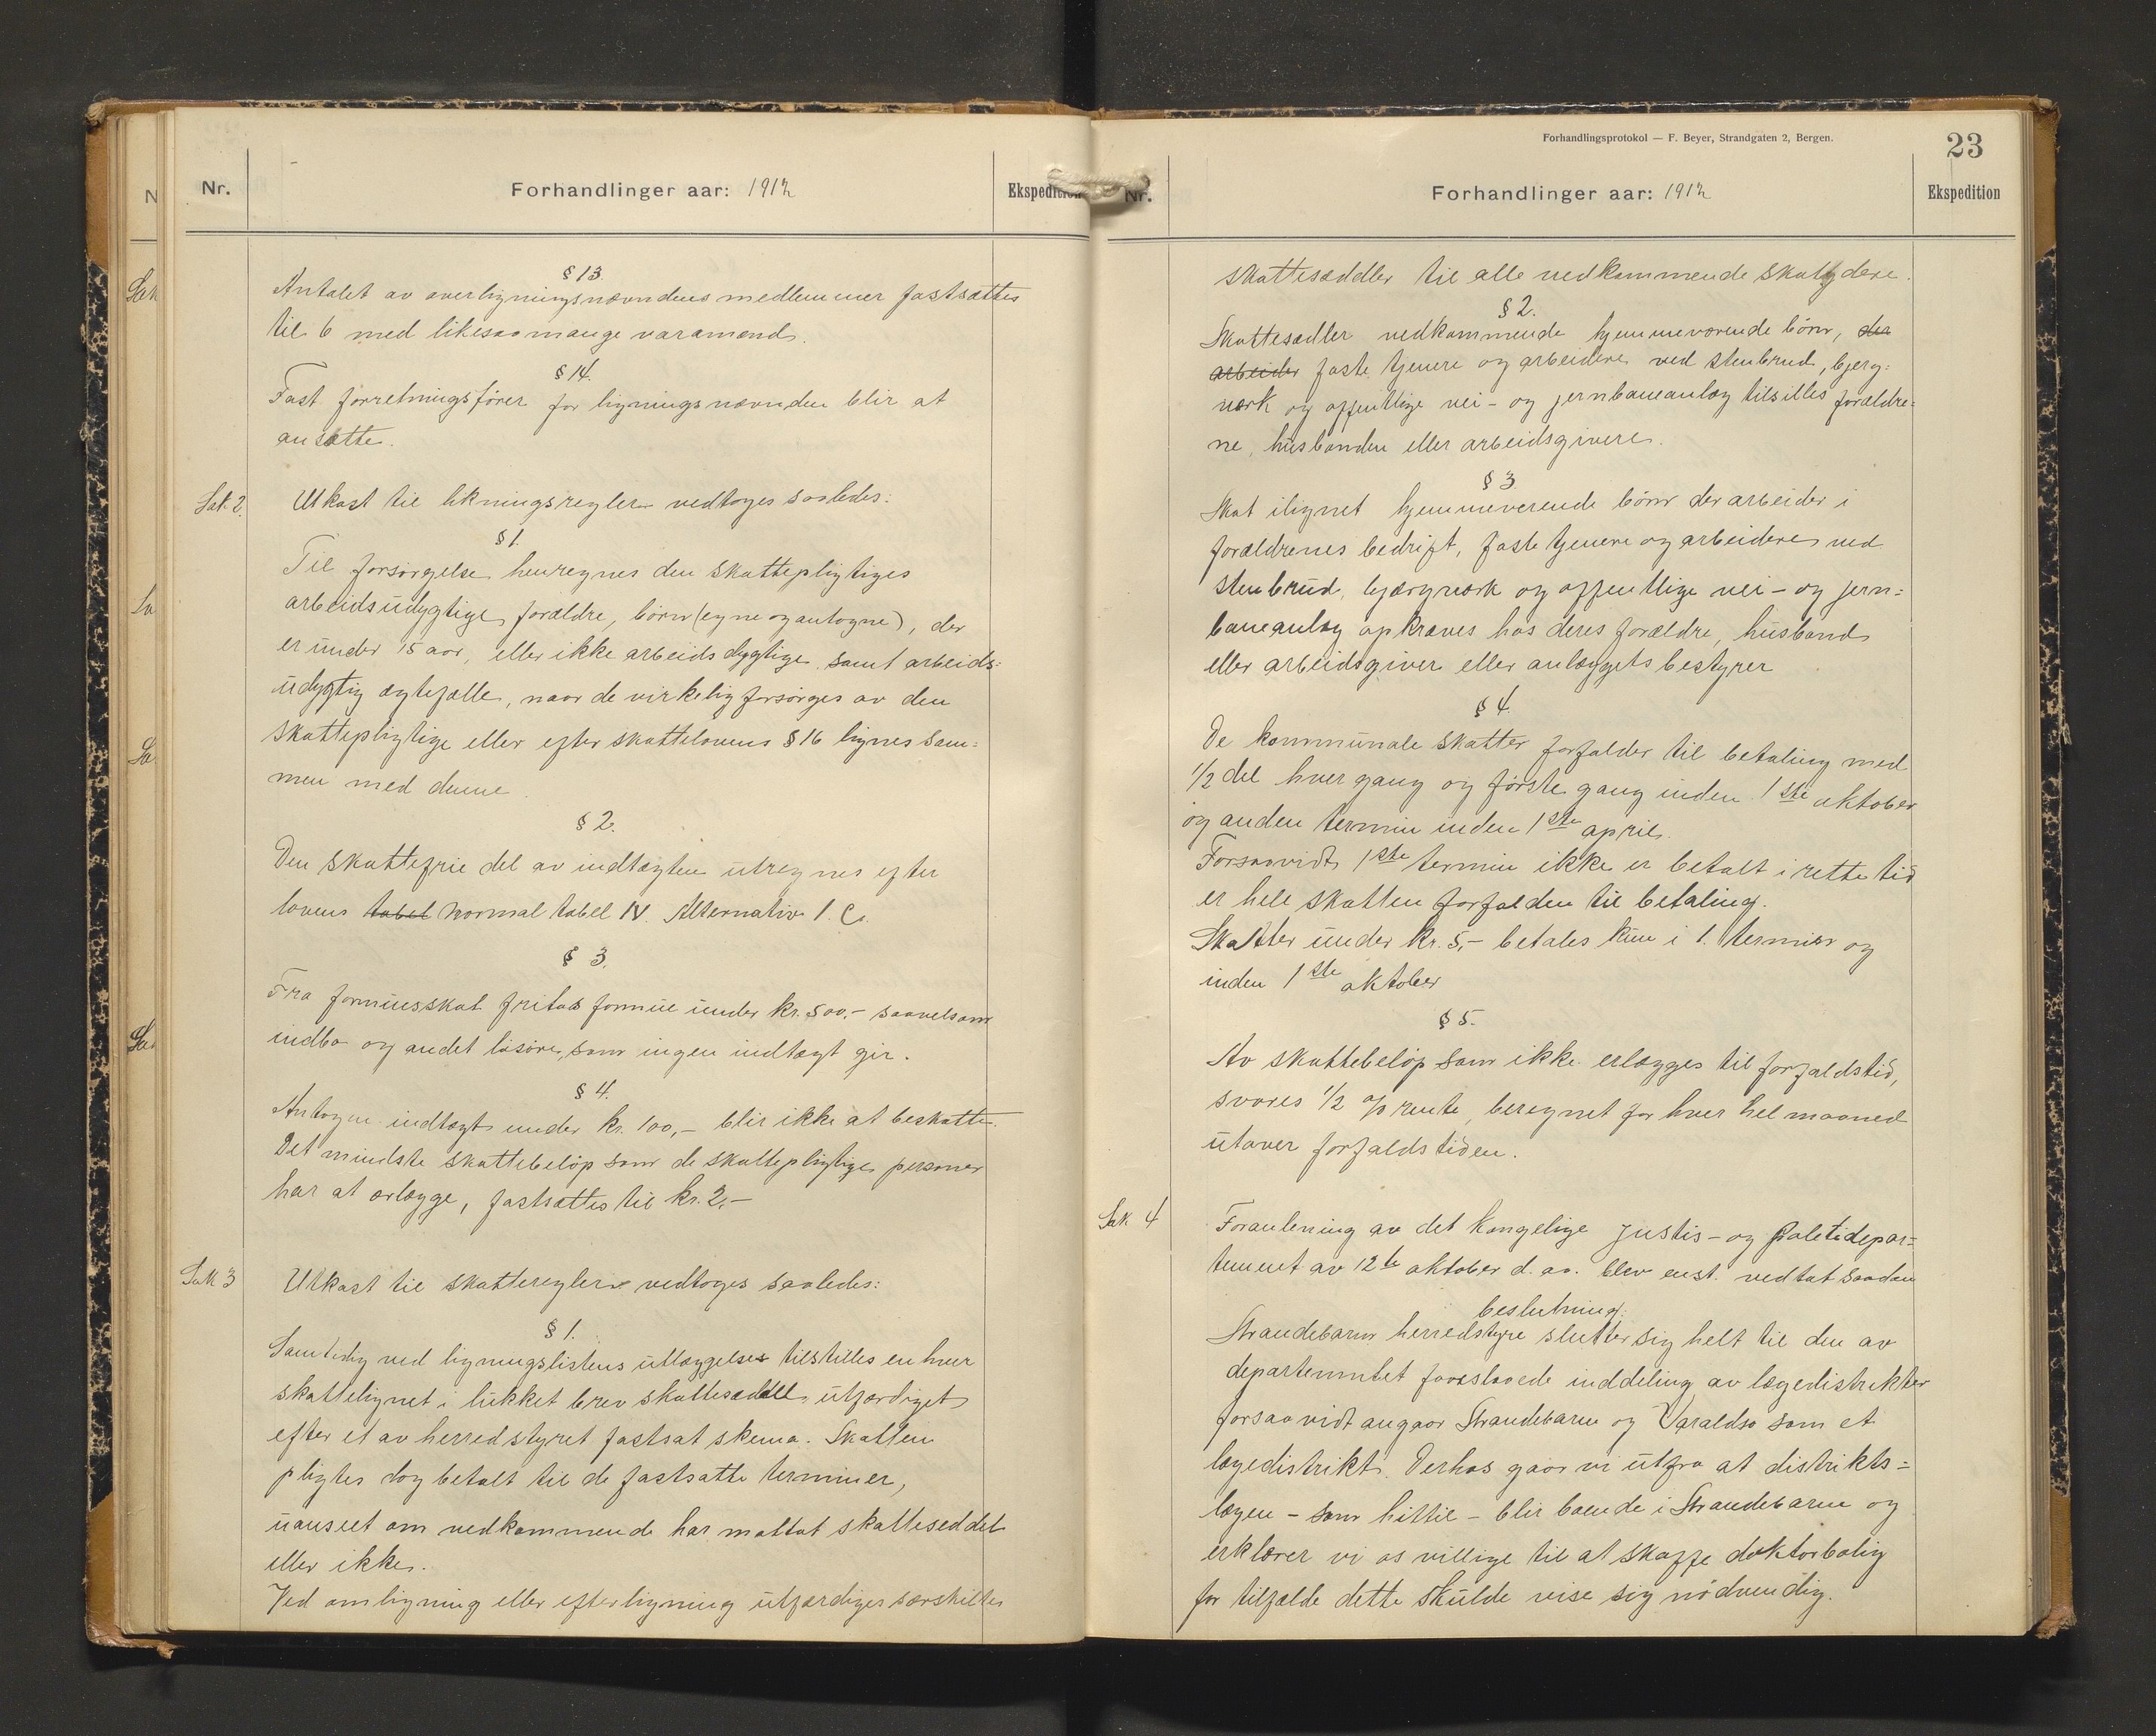 Nr.
Forhandlinger aar: 1912
Ekspedition
§ 13
Antalet av overligningsnævndens medlemmer fastsættes
til 6 med likesaamange varamænd.
§ 14.
Fast forretningsfører for ligningsnævnden blir at
ansætte.
Sak 2. Utkast til likningsregler vedtoges saaledes:
§ 1.
Til forsørgelse henregnes den skattepligtiges
arbeidsudygtige forældre, børn (egne og antogne), der
er under 15 aar, eller ikke arbeidsdygtige samt arbeids=
udygtig ægtefælle, naar de virkelig forsørges av den
skattepligtige eller efter skattelovens § 16 lignes sam=
men med denne.
§ 2.
Den skattefrie del av indtægten utregnes efter
lovens tabel normal tabel IV. Alternativ 1. C.
§ 3.
Fra formuesskat fritas formue under kr. 500.- saavelsom
indbo og andet løsøre, som ingen indtægt gir.
§ 4.
Antagen indtægt under kr. 100,- blir ikke at beskatte.
Det mindste skattebeløp som de skattepligtige personer
har at erlægge, fastsættes til kr. 2,-
Sak 3 Utkast til skatteregler vedtoges saaledes:
§ 1.
Samtidig ved ligningslistens utlæggelse tilstilles enhver
skattelignet i lukket brev skattesæddel, utfærdiget
efter et av herredstyret fastsat skema. Skatten
pligtes dog betalt til de fastsatte terminer,
uanseet om vedkommende har mottat skatteseddel
eller ikke.
Ved omligning eller efterligning utfærdiges særskilte
Forhandlingsprotokol — F. Beyer, Strandgaten 2, Bergen.
23
Nr.
Forhandlinger aar: 1912
Ekspedition
skattesæddler til alle vedkommende skatydere.
§ 2.
Skattesedler vedkommende hjemmeværende børn, der
arbeider faste tjenere og arbeidere ved stenbrud, bjerg=
værk og offentlige vei- og jernbaneanlæg tilstilles forældre=
ne, husbonden eller arbeidsgivere.
§ 3
Skat ilignet hjemmeverende børn der arbeider i
forældrenes bedrift, faste tjenere og arbeidere ved
stenbrud, bjærgværk og offentlige vei- og jern=
baneanlæg opkræves hos deres forældre, husbond
eller arbeidsgiver eller anlæggets bestyrer
§ 4.
De kommunale skatter forfalder til betaling med
1/2 del hver gang og første gang inden 1ste oktober
og anden termin inden 1ste april.
Forsaavidt 1ste termin ikke er betalt i rette tid
er hele skatten forfalden til betaling.
Skatter under kr. 5,- betales kun i 1. termin og
inden 1ste oktober
§ 5.
Av skattebeløp som ikke erlægges til forfaldstid,
svares 1/2 % rente, beregnet for hver hel maaned
utover forfaldstiden.
Sak 4 Foranledning av det kongelige Justis- og Politidepar=
tement av 12te oktober d. aa. blev enst. vedtat saadan
beslutning:
Strandebarm herredstyre slutter sig helt til den av
departementet foreslaaede inddeling av lægedistrikter
forsaavidt angaar Strandebarm og Varaldsø som et
lægedistrikt. Derhos gaar vi utfra at distrikts=
lægen - som hittil - blir boende i Strandebarm og
erklærer vi os villige til at skaffe doktorbolig
for tilfælde dette skulde vise sig nødvendig.